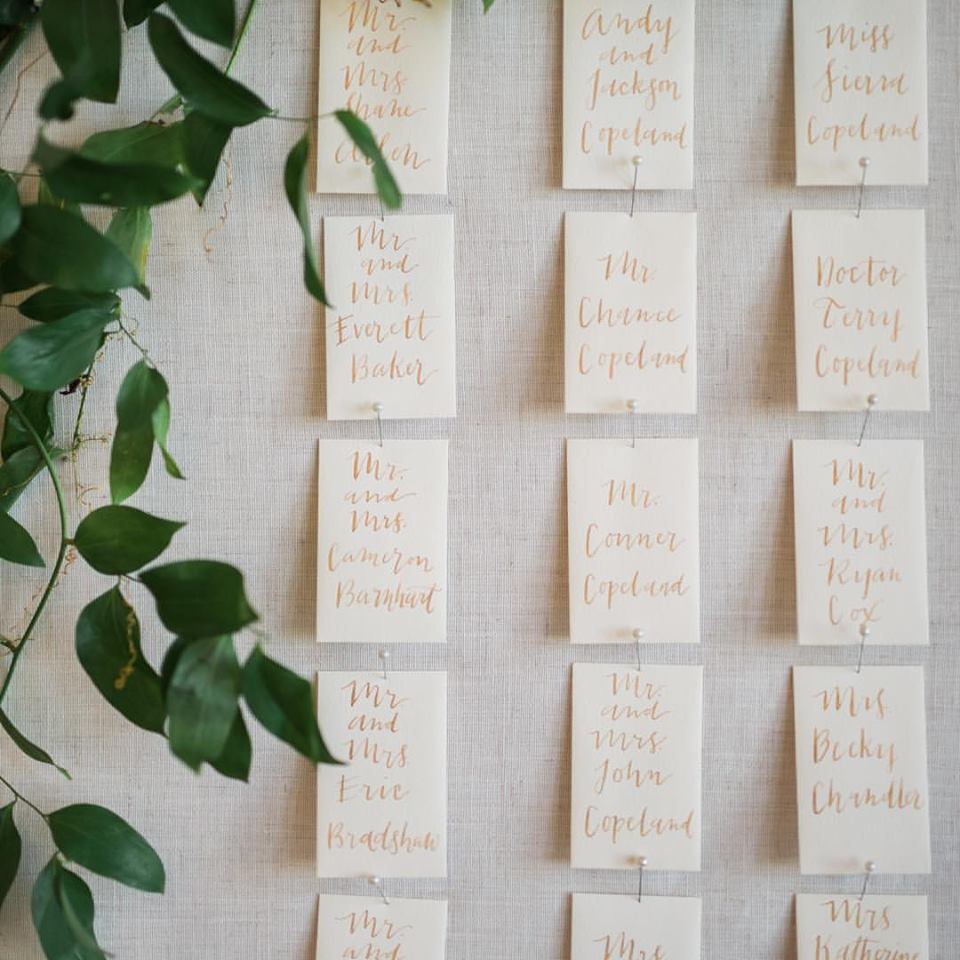 Mr.
and
Mrs
Shane
Allen
Mr.
and
Mrs.
Everett
Baker
Mr.
and
Mrs.
Cameron
Barnhart
Mr
and
Mrs
Eric
Bradshaw
Mr.
and
Andy
and
Jackson
Copeland
Mr.
Chance
Copeland
Mr.
Conner
Copeland
Mr.
and
Mrs.
John
Copeland
Mrs
Miss
Sierra
Copeland
Doctor
Terry
Copeland
Mr.
and
Mrs.
Ryan
Cox
Mrs
Becky
Chandler
Mrs
Katherine